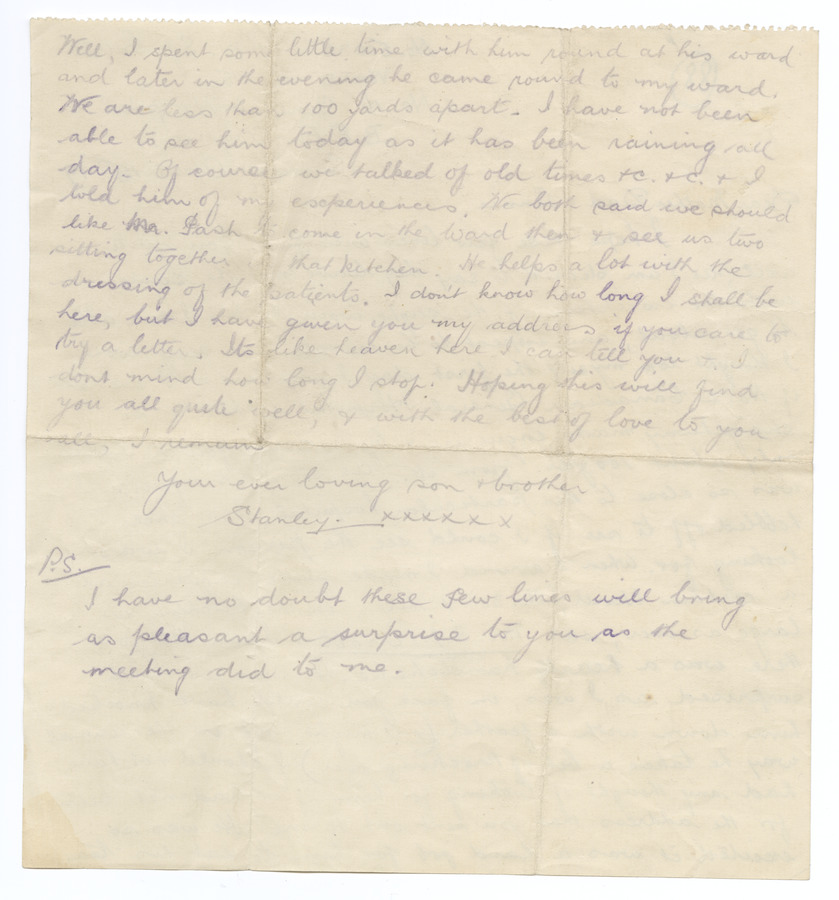 Well, I spent some little time with him round at his ward
and later in the evening he came round to my ward.
We are less than 100 yards apart. I have not been
able to see him today as it has been raining all
day. Of course we talked of old times &c. &c. & I
told him of my exsperiences. We both said we should
like Mr. Pash to come in the Ward then & see us two
sitting together in that kitchen. He helps a lot with the
dressing of the patients. I don't know how long I shall be
here, but I have given you my address if you care to
try a letter. Its like heaven here I can tell you & I
dont mind how long I stop. Hoping this will find
you all quite well, & with the best of love to you
all, I remain
Your ever loving son & brother
Stanley. xxxxxxx
P.S.
I have no doubt these few lines will bring
as pleasant a surprise to you as the
meeting did to me.